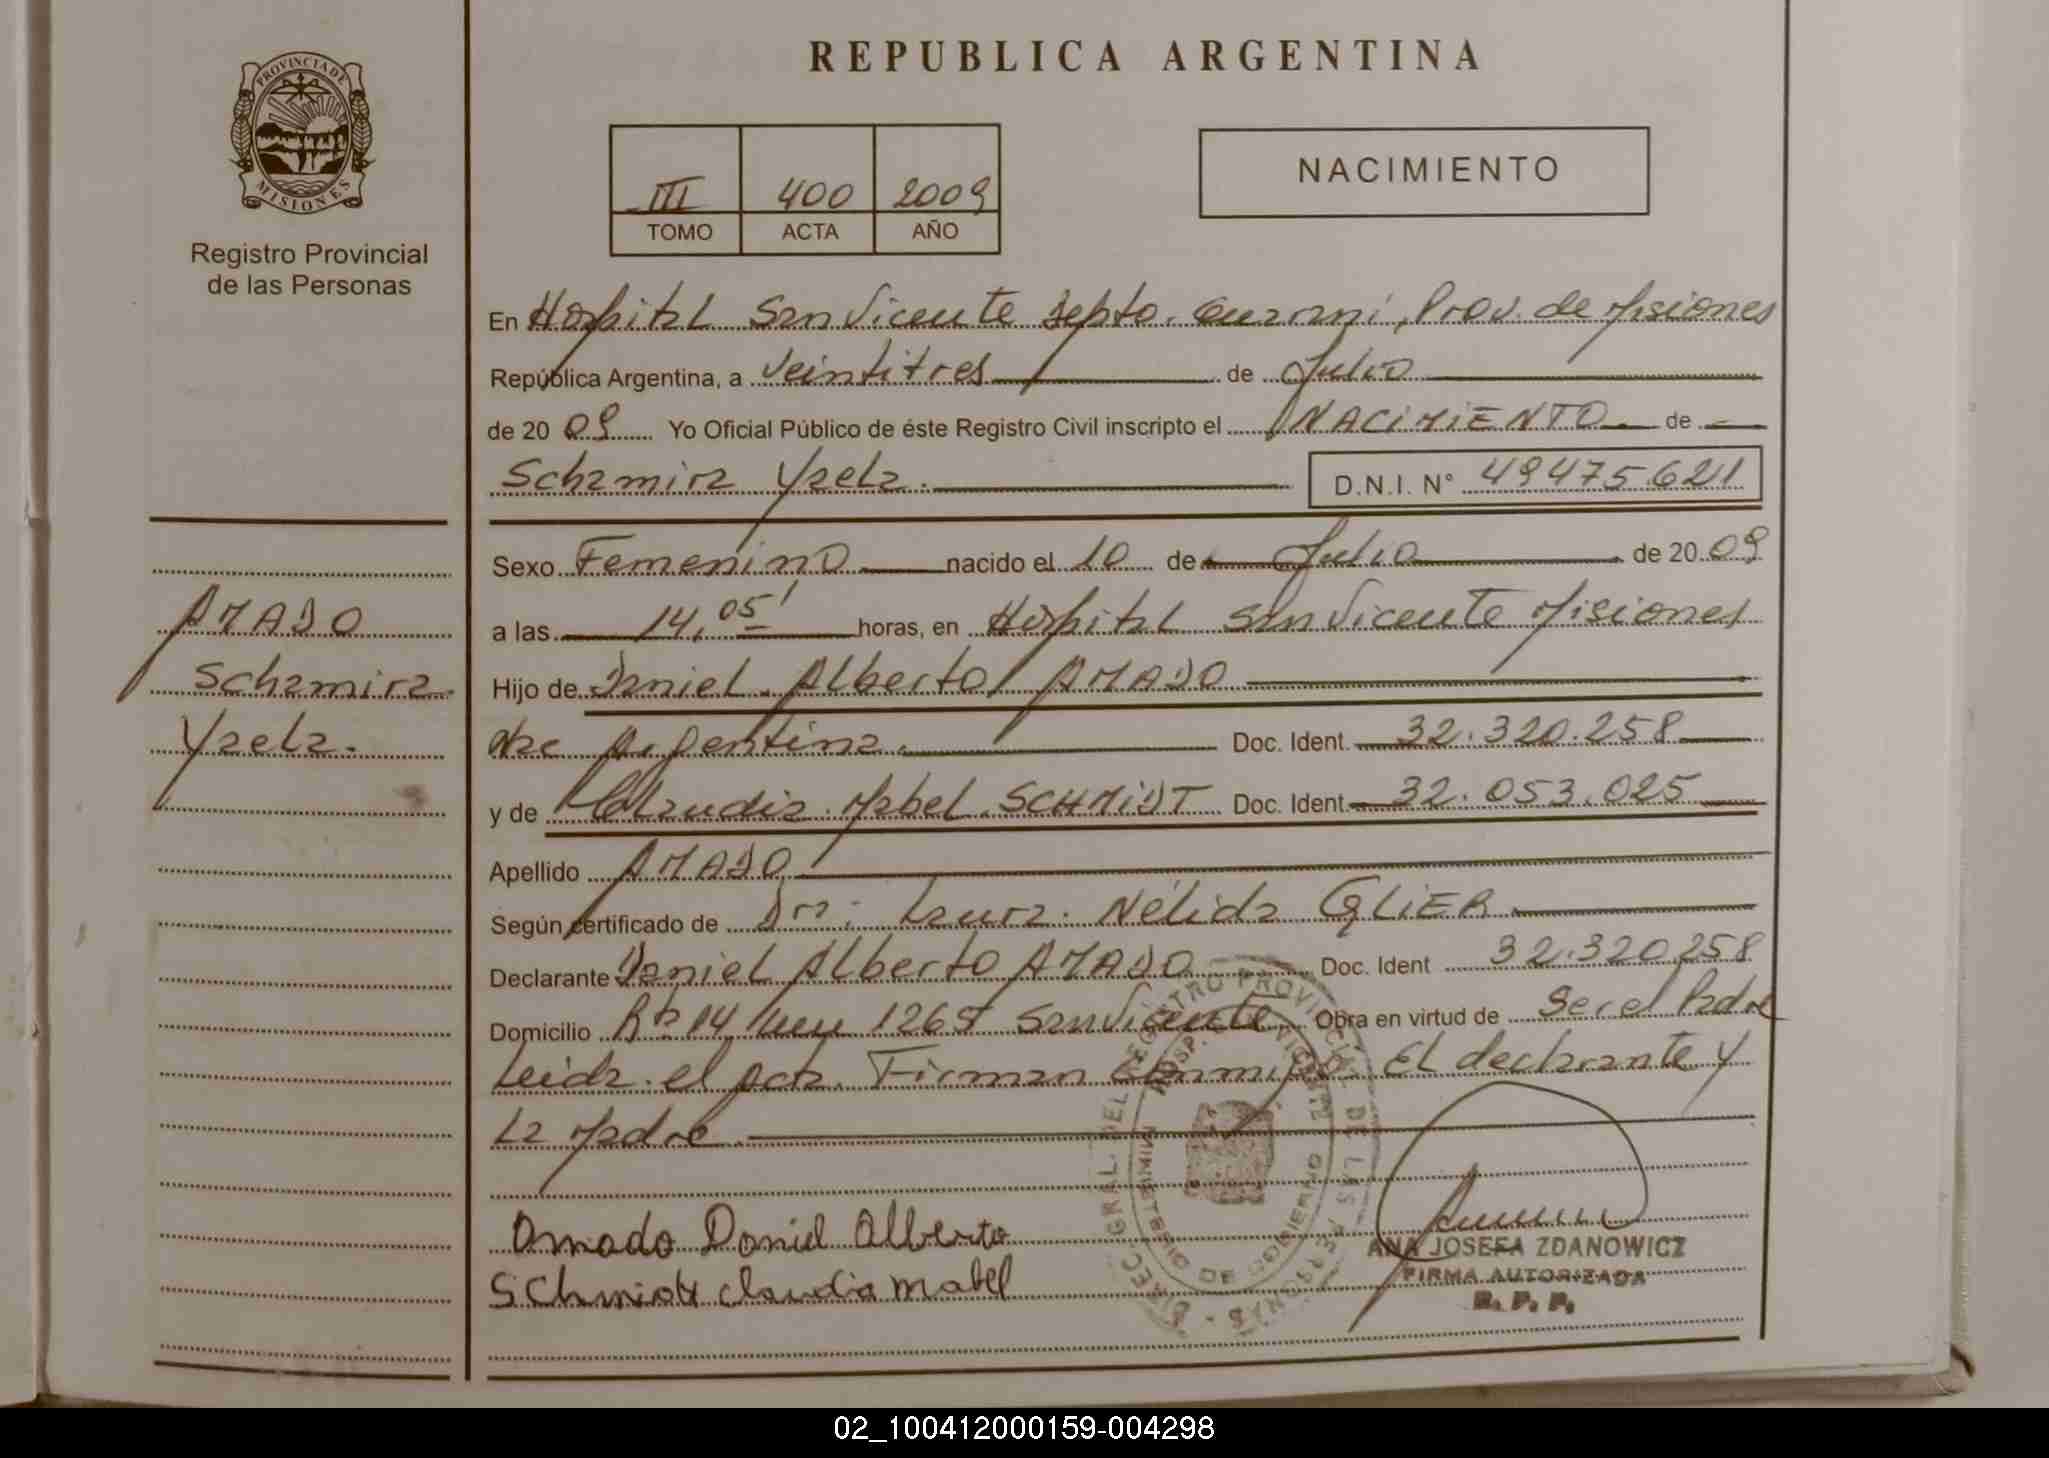 PROVINCIA DE
MISIONES
Registro Provincial
de las Personas
AMADO
Schamira
Yaela.
REPUBLICA ARGENTINA
III 400 2009
TOMO ACTA AÑO
NACIMIENTO
En Hospital San Vicente Depto. Guaraní, Prov. de Misiones
República Argentina, a veintitres de Julio
de 20 09 Yo Oficial Público de éste Registro Civil inscripto el NACIMIENTO de
Schamira Yaela. D.N.I. N° 49475621
Sexo Femenino nacido el 10 de Julio de 20 09
a las 14,05' horas, en Hospital San Vicente Misiones
Hijo de Daniel Alberto AMADO
Nac Argentina. Doc. Ident. 32.320.258
y de Claudia Mabel SCHMIDT Doc. Ident 32.053.025
Apellido AMADO
Según certificado de Dra: Laura Nélida GLIER
Declarante Daniel Alberto AMADO Doc. Ident 32.320.258
Domicilio 14 1265 San Vicente Obra en virtud de Ser el Padre
Leida el acta. Firman Conmigo El declarante y
La Madre
Amado Daniel Alberto
Schmidt claudia mabel
DIREC. GRAL. DEL REGISTRO PROVINCIAL DE LAS PERSONAS
HOSP. SAN VICENTE
MINISTERIO DE GOBIERNO
ANA JOSEFA ZDANOWICZ
FIRMA AUTORIZADA
R. P. P.
02_100412000159-004298